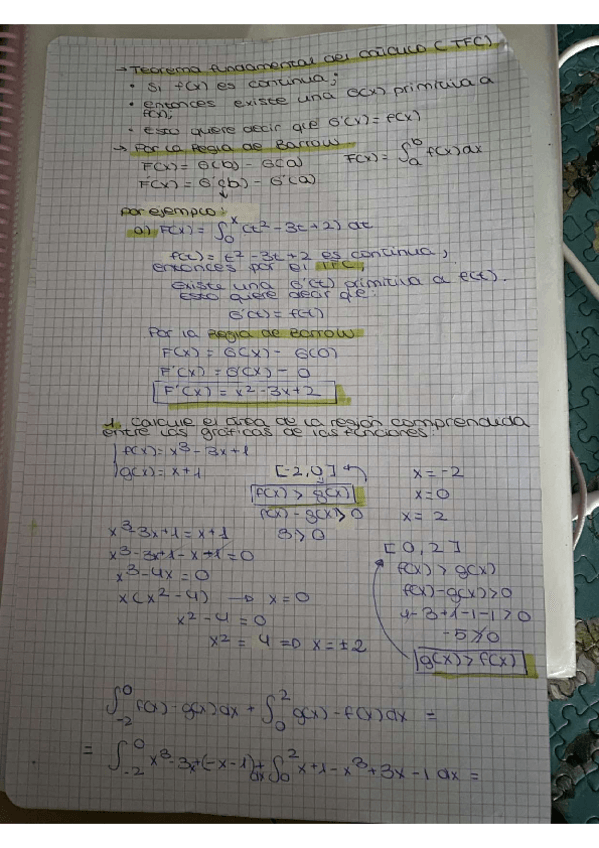 → Teorema fundamental del cálculo (TFC)
• Si f(x) es continua;
• entonces existe una G(x) primitiva a
f(x);
• Esto quiere decir que G'(x) = f(x)
→ Por la Regla de Barrow
F(x) = G(b) - G(a) F(x) = ∫_a^b f(x) dx
F'(x) = G'(b) - G'(a)
↓
Por ejemplo:
a) F(x) = ∫_0^x (t² - 3t + 2) dt
f(t) = t² - 3t + 2 es continua,
entonces por el TFC,
existe una G'(t) primitiva a f(t).
Esto quiere decir que:
G'(t) = f(t)
Por la Regla de Barrow
F(x) = G(x) - G(0)
F'(x) = G'(x) - 0
F'(x) = x² - 3x + 2
1. Calcule el área de la región comprendida
entre las gráficas de las funciones:
f(x) = x³ - 3x + 1
g(x) = x + 1 [-2, 0] x = -2
f(x) > g(x) x = 0
f(x) - g(x) > 0 x = 2
x³ - 3x + 1 = x + 1 3 > 0
x³ - 3x + 1 - x + 1 = 0 [0, 2]
x³ - 4x = 0 f(x) > g(x)
x(x² - 4) → x = 0 f(x) - g(x) > 0
x² - 4 = 0 1 - 1 > 0
x² = 4 ⇒ x = ± 2 -5 ≯ 0
g(x) > f(x)
∫_-2^0 f(x) - g(x) dx + ∫_0^2 g(x) - f(x) dx =
= ∫_-2^0 x³ - 3x + (-x - 1) dx + ∫_0^2 x + 1 - x³ + 3x - 1 dx =